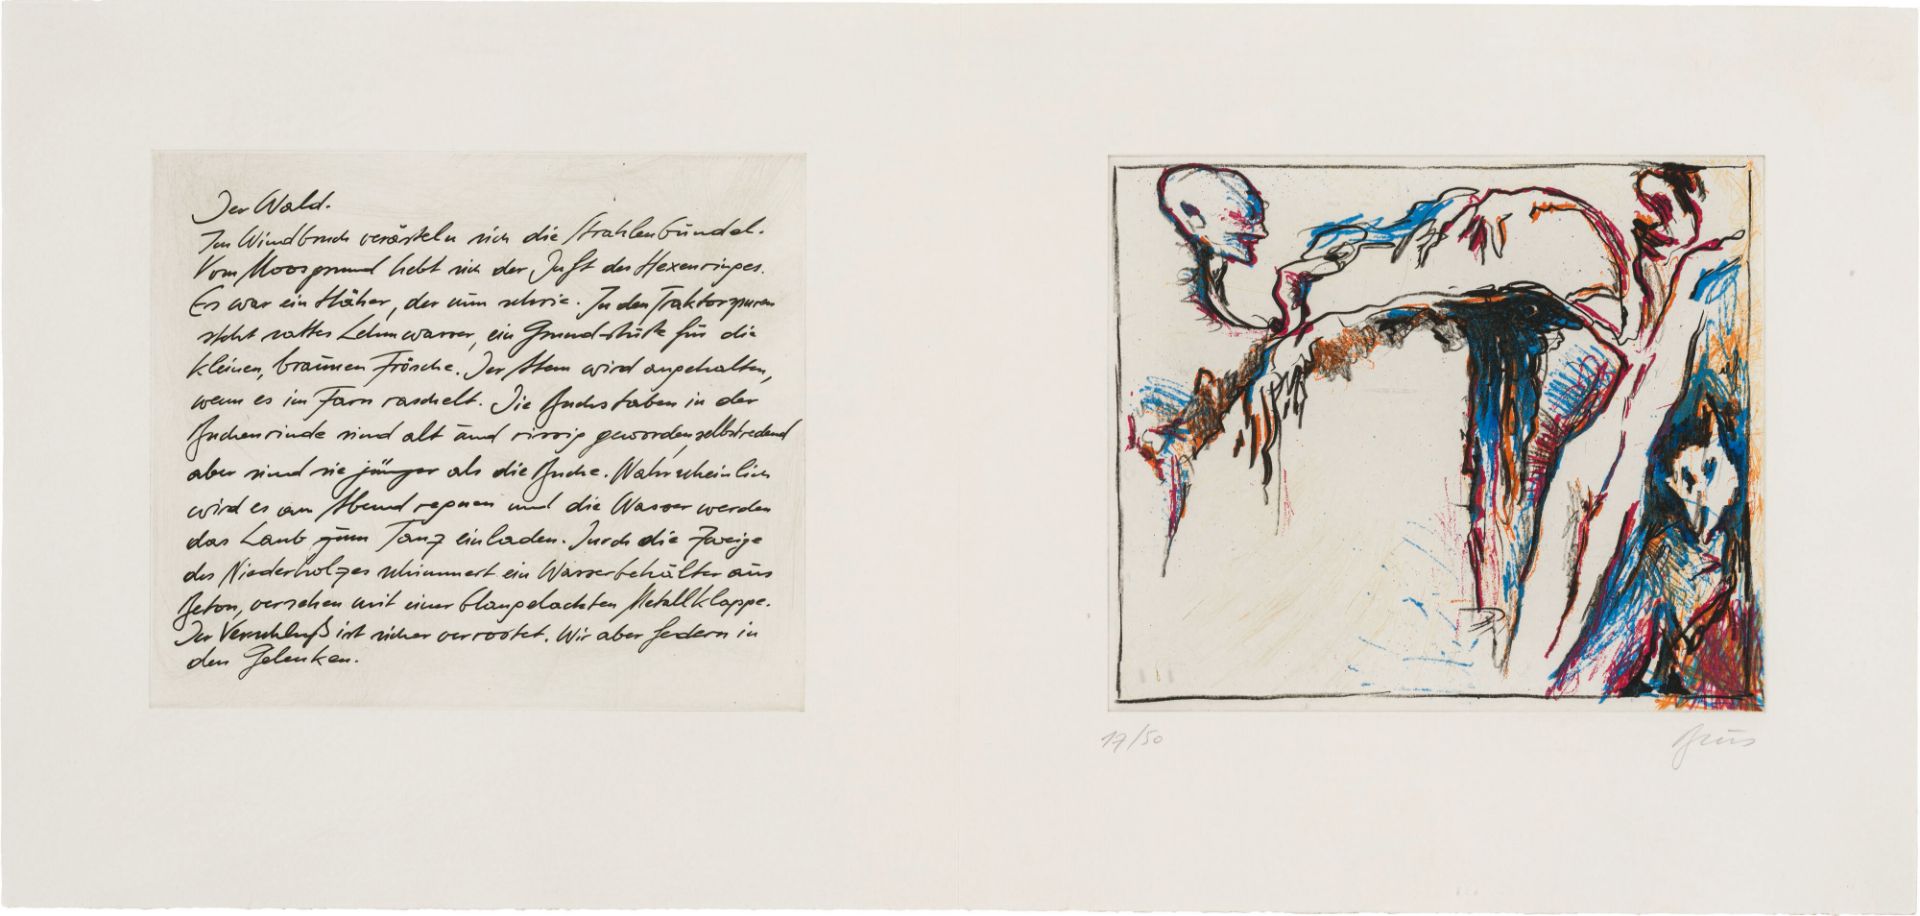 Der Wald.
Im Windbruch verästeln sich die Strahlenbündel.
Vom Moosgrund hebt sich der Duft des Hexenringes.
Es war ein Häher, der nun schrie. In den Traktorspuren
steht sattes Lehmwasser, ein Grundstück für die
kleinen, braunen Frösche. Der Atem wird angehalten,
wenn es im Farn raschelt. Die Buchstaben in der
Buchenrinde sind alt und rissig geworden selbstredend
aber sind sie jünger als die Buche. Wahrscheinlich
wird es am Abend regnen und die Wasser werden
das Laub zum Tanz einladen. Durch die Zweige
des Niederholzes schimmert ein Wasserbehälter aus
Beton, versehen mit einer blaugelackten Metallklappe.
Der Verschluß ist sicher verrostet. Wir aber federn in
den Gelenken.
17/50
Brus